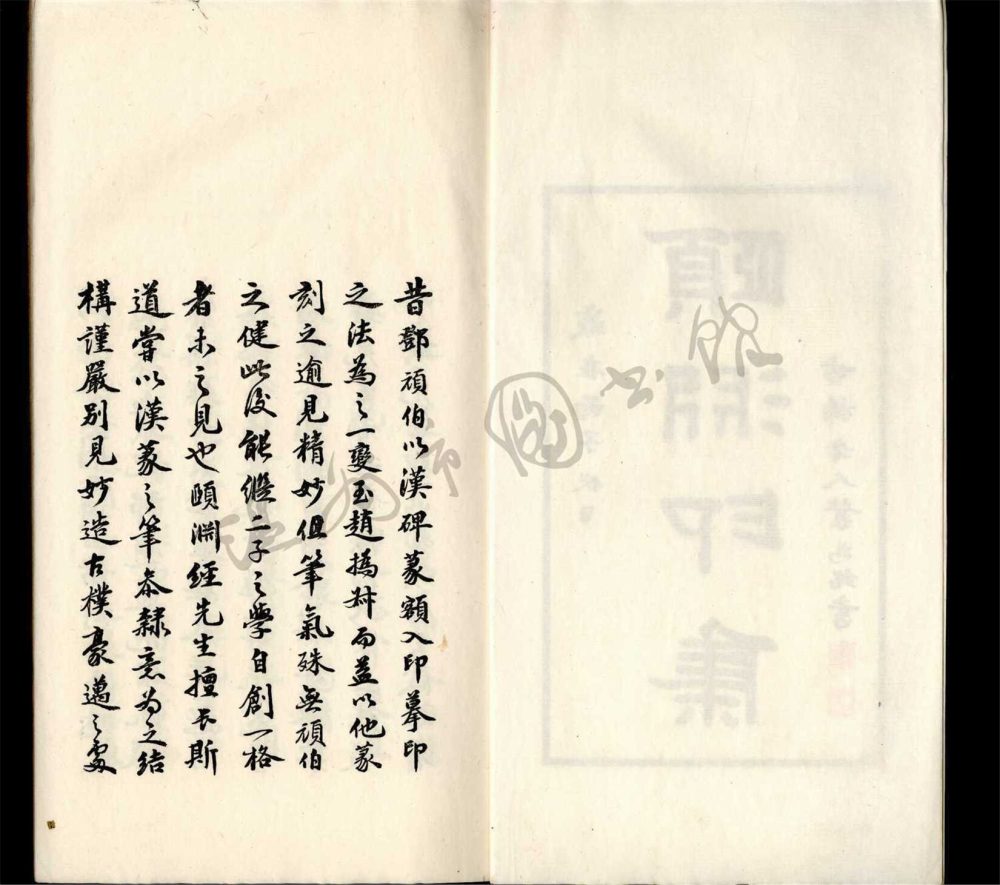 頤淵印集
昔鄧頑伯以漢碑篆額入印摹印
之法為之一變至趙撝叔而益以他篆
刻之逾見精妙但筆氣殊無頑伯
之健此後能繼二子之學自創一格
者未之見也頤淵經先生擅長斯
道嘗以漢篆之筆參隸意為之結
構謹嚴別見妙造古樸豪邁之處